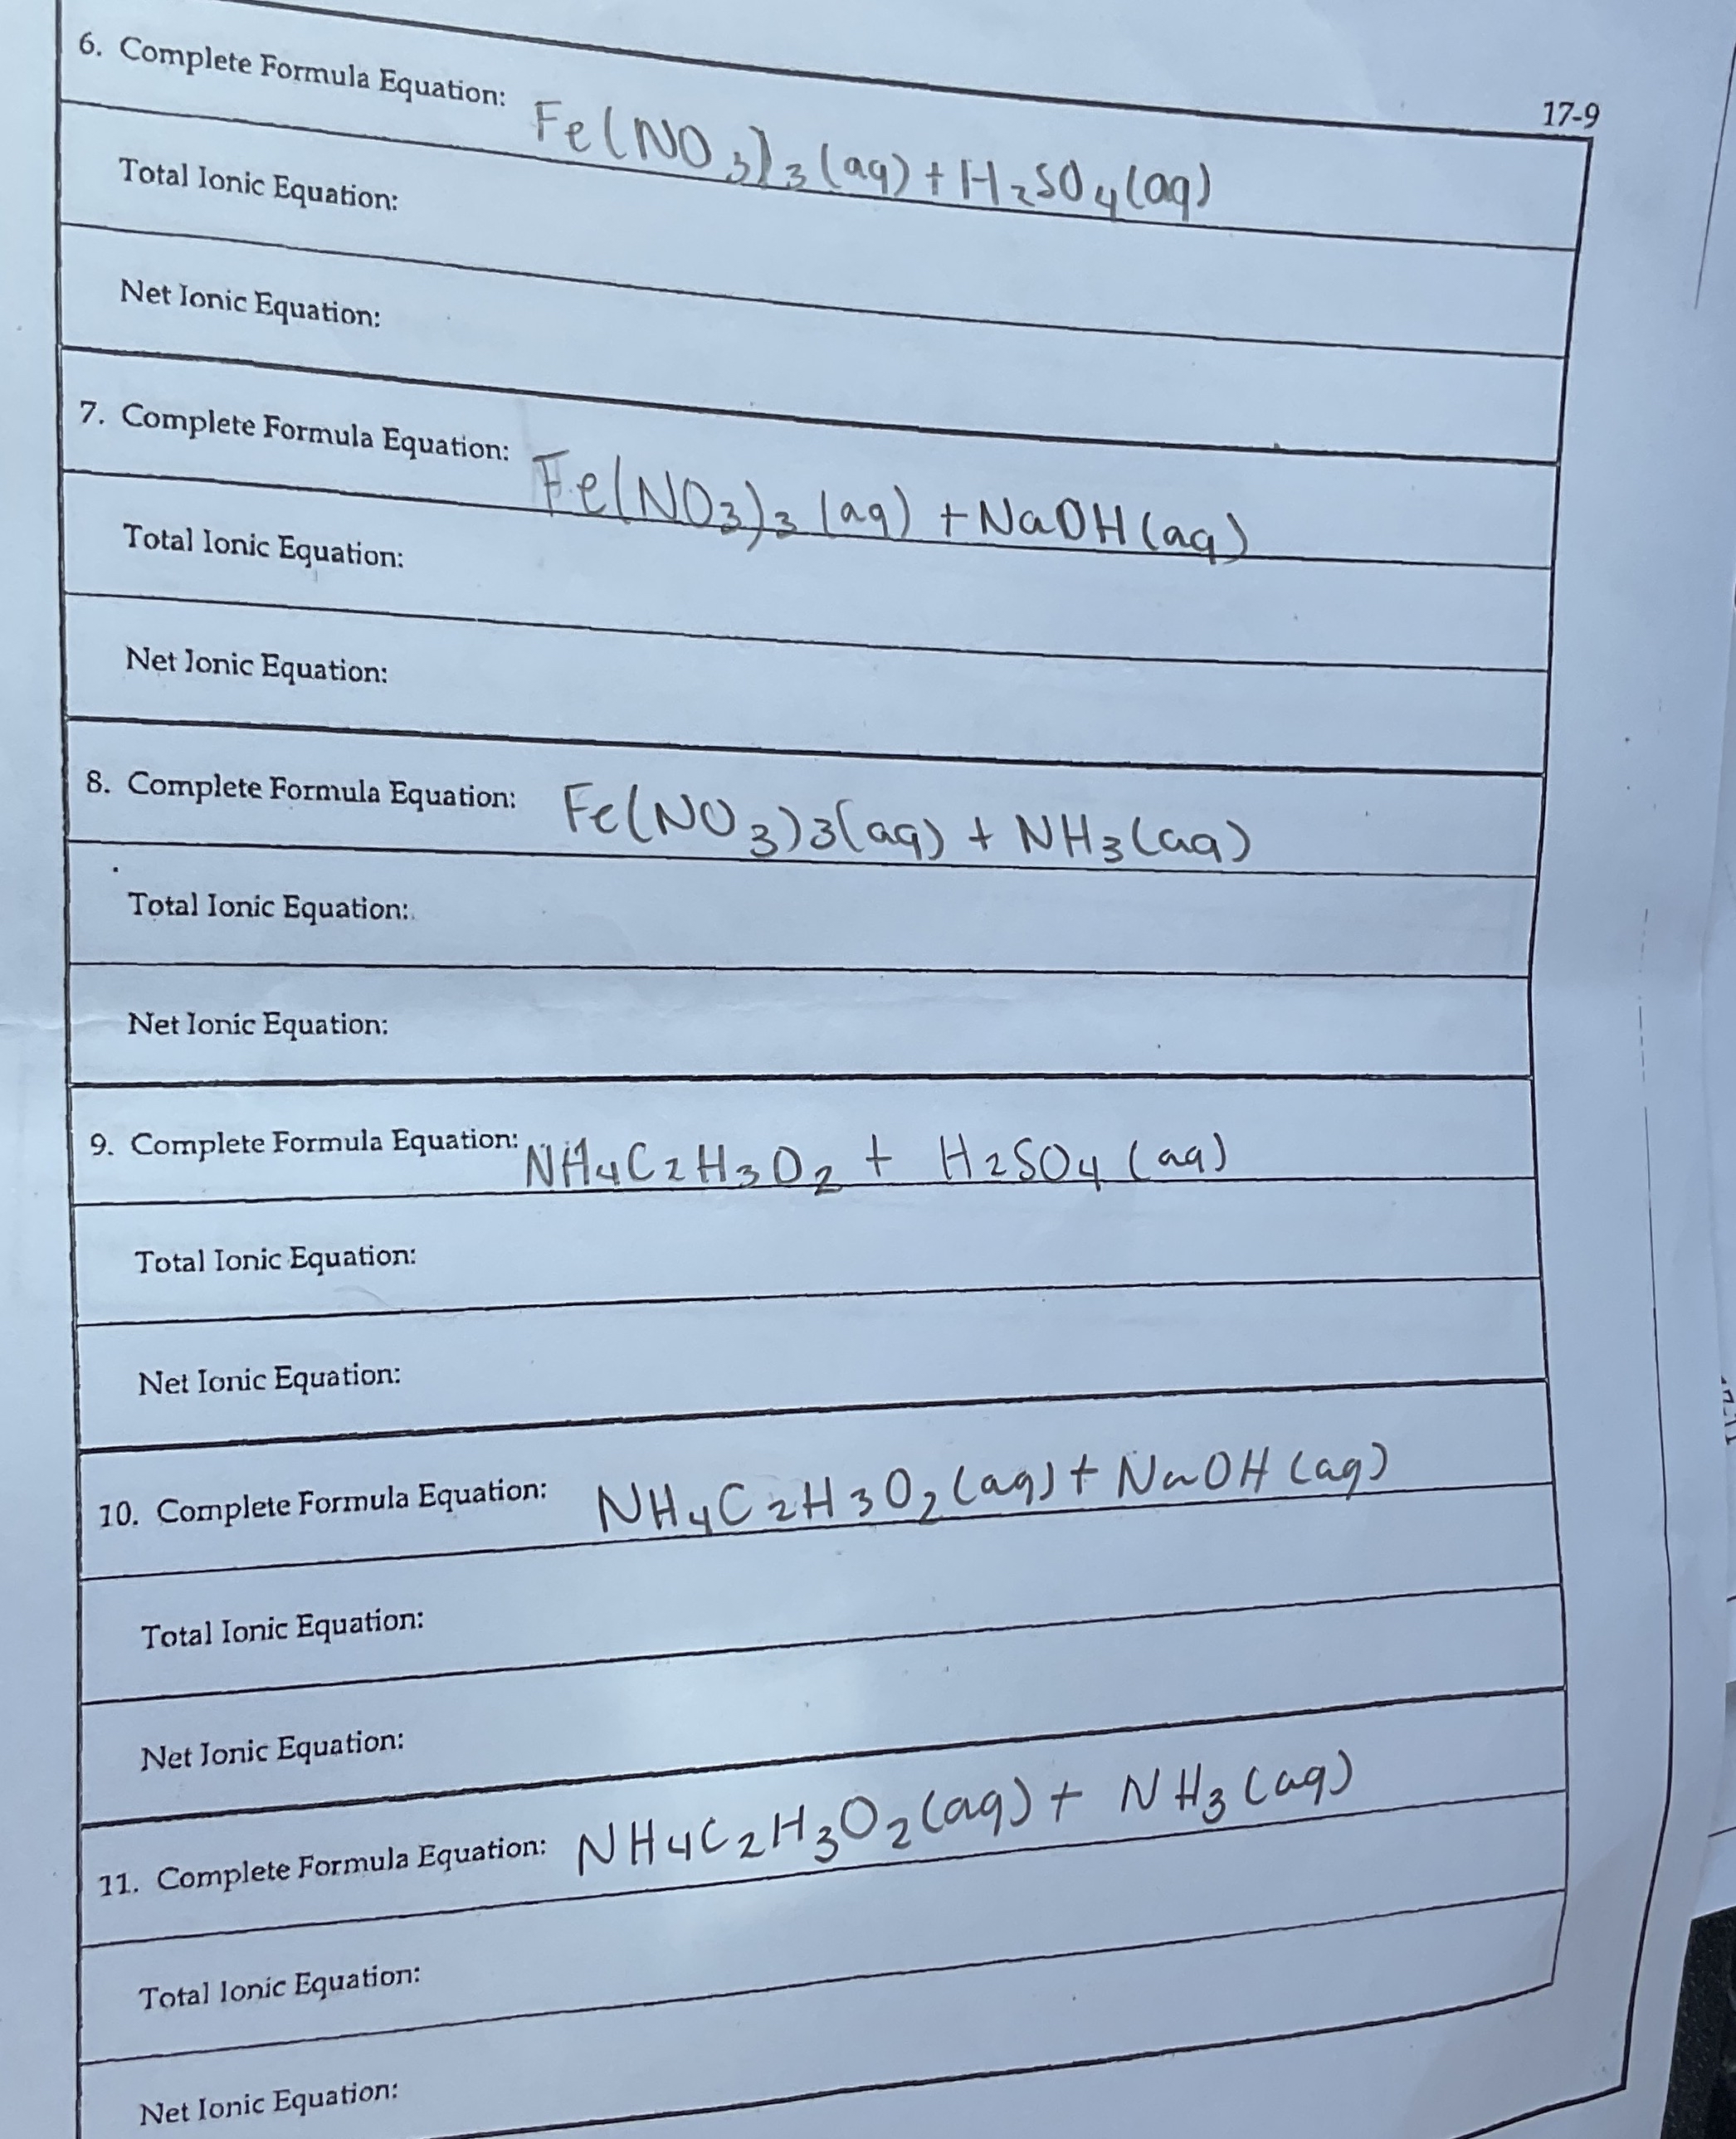 17-9
6. Complete Formula Equation: Fe(NO3)3(aq) + H2SO4(aq)
Total Ionic Equation:
Net Ionic Equation:
7. Complete Formula Equation: Fe(NO3)3(aq) + NaOH(aq)
Total Ionic Equation:
Net Ionic Equation:
8. Complete Formula Equation: Fe(NO3)3(aq) + NH3(aq)
Total Ionic Equation:
Net Ionic Equation:
9. Complete Formula Equation: NH4C2H3O2 + H2SO4(aq)
Total Ionic Equation:
Net Ionic Equation:
10. Complete Formula Equation: NH4C2H3O2(aq) + NaOH(aq)
Total Ionic Equation:
Net Ionic Equation:
11. Complete Formula Equation: NH4C2H3O2(aq) + NH3(aq)
Total Ionic Equation:
Net Ionic Equation: